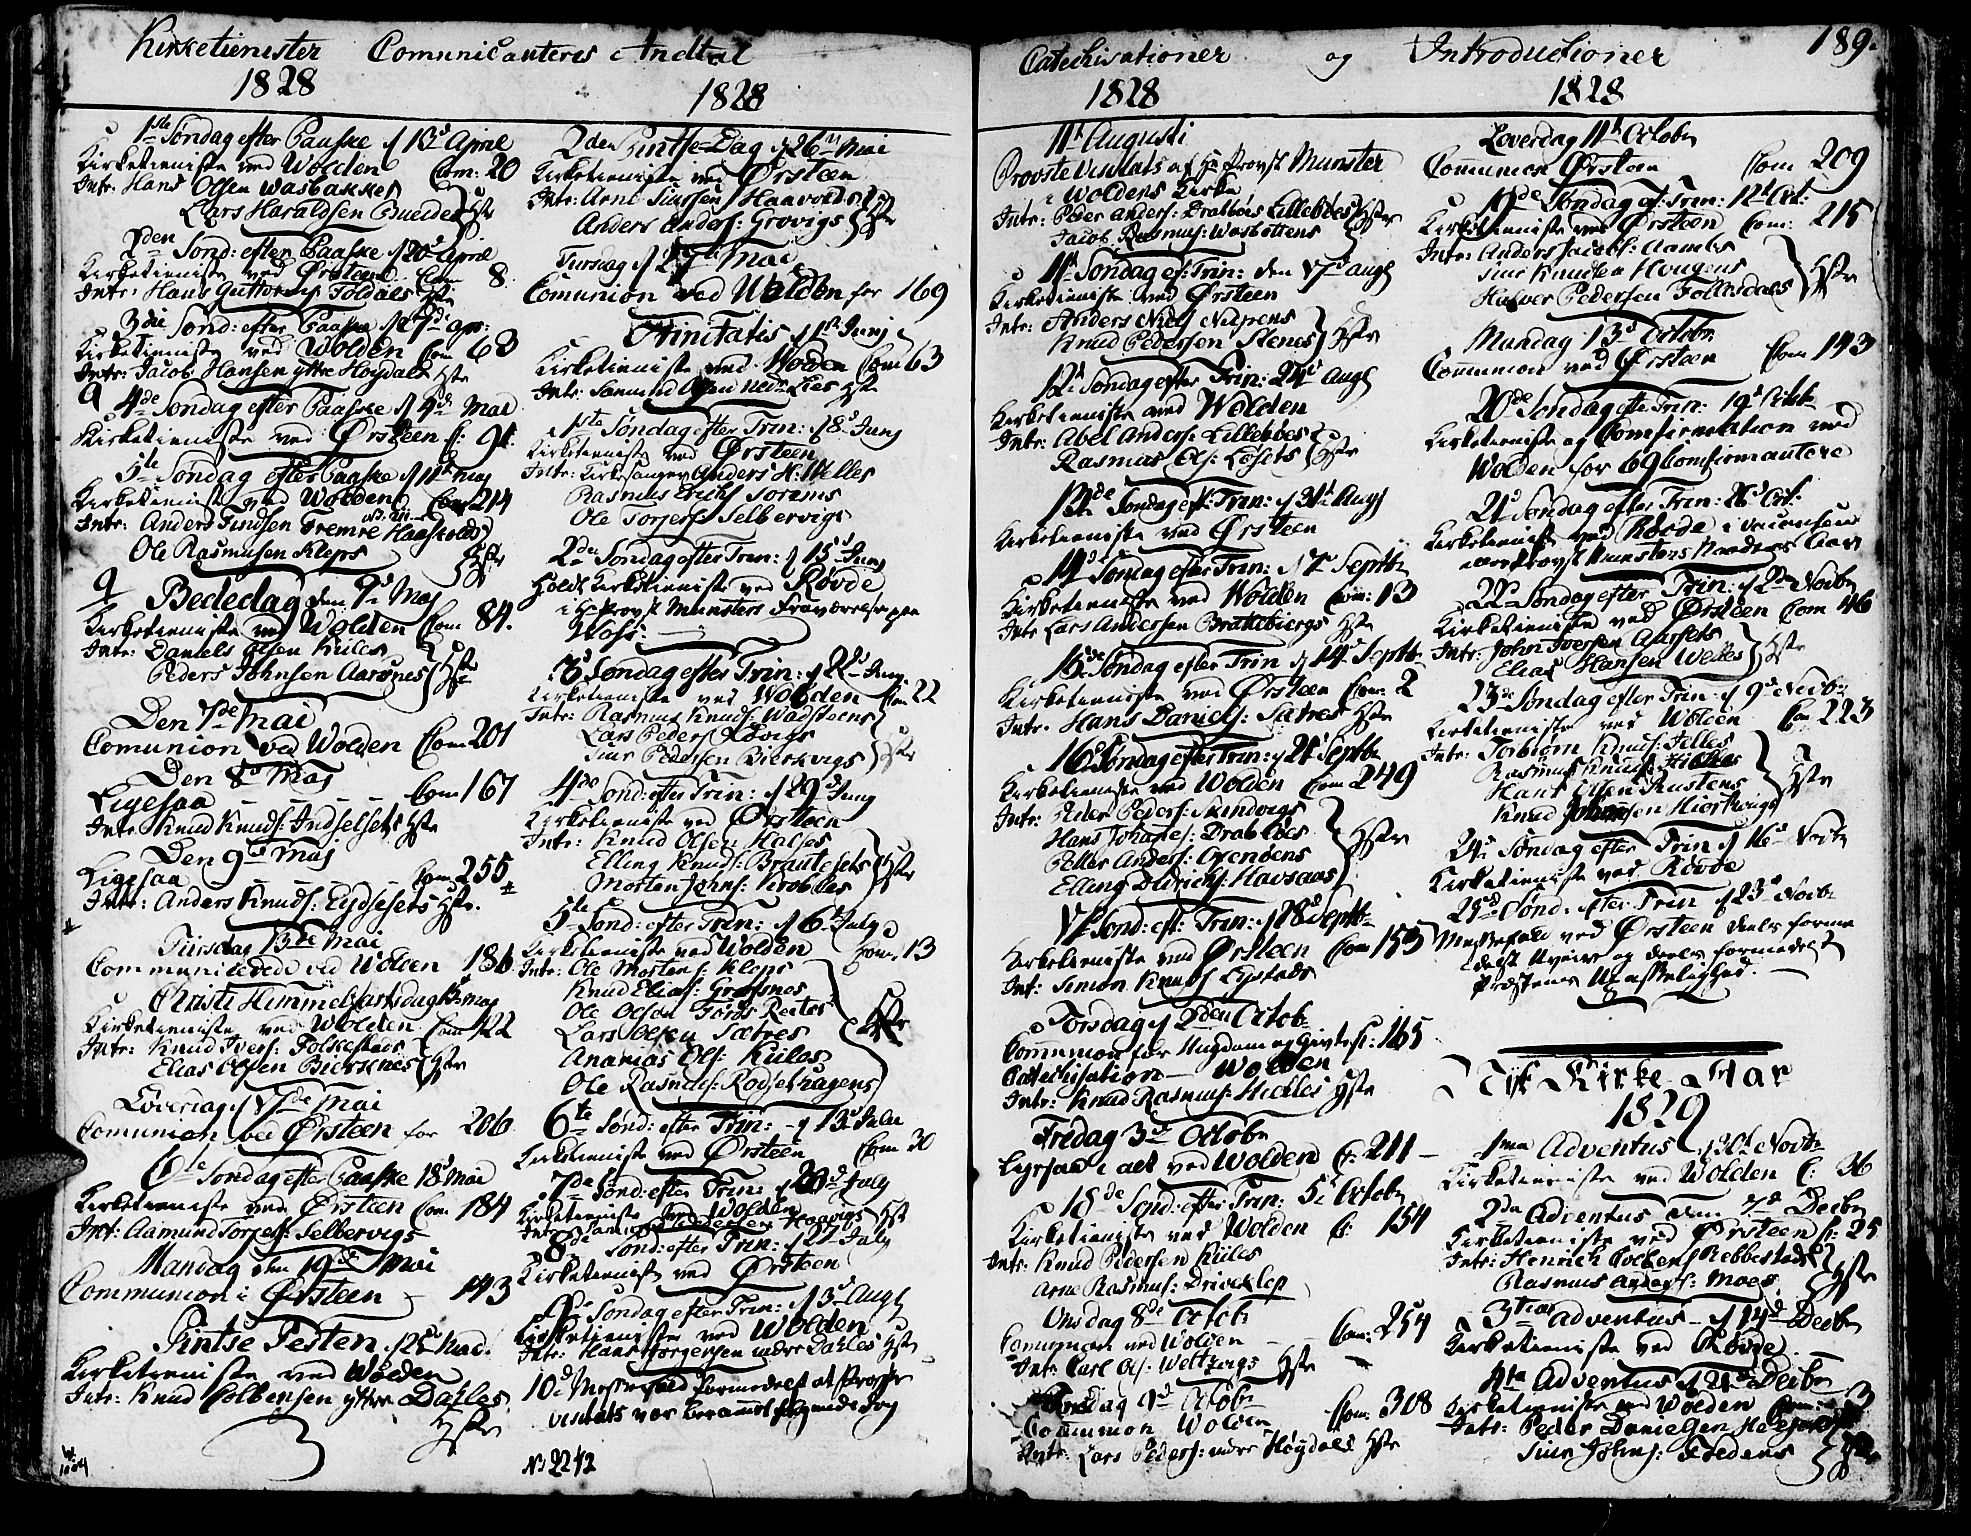 Kirketienister Comunicanteres Andtal
1828 1828
1ste Søndag efter Paaske d 13d April
Kirketieniste ved Wolden Com: 20
Intr: Hans Olsen Wasbakkes
Lars Haraldsen Hstr
2den Sønd: efter Paaske d 20d April
Kirketieniste ved Ørsteen Com 8
Intr: Hans Guttorms Foldals Hstr
3die Sønd: efter Paaske d 27d apr:
Kirketieniste ved Wolden Com 63
Intr: Jacob Hansen yttre Høydals Hstr
4de Søndag efter Paaske d 4d Mai
Kirketieniste ved Ørsteen C: 94
5te Søndag efter Paaske d 11t maj
Kirketieniste ved Wolden Com 214
Intr: Anders Findsen Fremre Haaskolds
Ole Rasmusen Kleps Hstr
Bededag den
Kirketieniste ved Wolden Com 84.
Intr: Daniels Olsen Kiiles
Peders Johnsen Aarønes Hstr
Den 7de Mai
Comunion ved Wolden Com 201
Den 8d Maj
Ligesaa Com 167
Intr: Knud Knuds: Indselsets Hstr
Den 9d Maj
Ligesaa Com 255
Intr: Anders Knuds: Eydsesets Hstr.
Tiirsdag 13de Mai
Communicerede ved Wolden 186
Christi Himmelfartsdag 15 maj
Kirketieniste ved Wolden Com 122
Intr: Knud Ivers: Folkestads
Elias Olsen Biersenes Hstr
Løverdag d 17de Mai
Comunion ved Ørsteen for 206
6te Søndag efter Paaske 18d Mai
Kirketieniste ved Ørsteen Com 184
Int: Aamund Torgeis: Selbervigs
Mandag den 19de Mai
Communion i Ørsteen - 143
Pintse Festen d 25 Mai.
Kirketieniste ved Wolden
Intr: Knud Colbensen yttre Dahles
Hstr
2den Pintse-Dag d 26n Mai
Kirketieniste ved Ørsteen
Intr: Arne Siursen Haavolds
Anders Anders: Grøvigs Hstr
Tirsdag d 27de Mai
Comunion ved Wolden for 169
Trinitatis d 1st Junj
Kirketieniste ved Wolden Com 63
Intr: Hstr
1ste Søndag efter Trin: d 8d Junj
Kirketieniste ved Ørsteen
Intr: Kirkesanger Anders H: Welles
Rasmus Erichs
Ole Torjers: Selbervigs
2den Søndag efter Trin: d 15d Junj
Holdt Kirketieniste ved Røvde
i Hr Provst Munsters Fraværelse paa
3d Søndag efter Trin: d 22 Junj
Kirketieniste ved Wolden Com 22
Intr: Rasmus Knuds: Wadsteens
Lars Peders: Løvigs
Siur Pedersen Bierkvigs Hstr
4de Sønd: efter Trin: d 29d Junj
Kirketieniste ved Ørsteen
Intr: Knud Olsen Halses
Elling Knuds: Brautesets
Morten Johns: Hstr
5te Sønd: efter Trin: d 6t Julij
Kirketieniste ved Wolden Com. 13
Intr: Ole Mortens: Kleps
Knud Elias: Græsnes
Ole Olsen Førds Reites
Lars Olsen Sætres
Ananias Ols: Kiiles
Ole Rasmus: Rødsethagens Hstr
6te Sønd: efter Trin: d 13 Julii
Kirketieniste ved Ørsteen Com 20
7de Sønd: efter Trin: d 20d Julij
Kirketieniste ved Wolden
Hstr
8de Sønd: efter Trin: d 27 Julij
Kirketieniste ved Ørsteen
9de Søndag efter Trin: d 3d Aug
Kirketieniste ved Wolden
Intr: Hans Jørgensen indre Dahles Hstr
10d Messefald formedelst at Provste
visitats var berammet følgende Dag
No 2242
Catechisationer og Introductioner 189.
1828 1828
11t Augusti
Provste Visitats af Hr Provst Munster
i Woldens Kirke
Intr: Peder Anders: Drabløs Lillebøes Hstr
Jacob Rasmus: Wasbottens
11t Søndag ef: Trin: den 17d aug
Kirketieniste ved Ørsteen
Intr: Anders Niels
Knud Pedersen Stenes Hstr
12 Søndag efter Trin: 24d Aug
Kirketieniste ved Wolden
Intr: Abel Anders: Lillebøes
Rasmus Ols: Løsets Hstr
13de Søndag eft: Trin: d 31t Aug
Kirketieniste ved Ørsteen
14d Søndag efter Trin: d 7 Septb
Kirketieniste ved Wolden Com: 13
Intr Lars Andersen Brattebiergs Hstr
15de Søndag efter Trin d 14d Septb
Kirketieniste ved Ørsteen Com: 2
Intr: Hans Daniels: Sætres Hstr
16d Søndag efter Trin: d 21 Septb
Kirketieniste ved Wolden Com 249
Intr: Peder Peders:
Hans Johanes: Drabløes
Petter Anders: Ovenøens
Elling Didrichs: Havsaas Hstr
17d Sønd: eft: Trin: d 28d Septb
Kirketieniste ved Ørsteen Com 153
Int: Simon Knuds Egseds
Torsdag d 2den Octob
Communion for Ungdom og Givte C: 165
Catechisation - Wolden
Intr: Knud Rasmus: Hechles Hstr
Fredag 3d Octobr
Ligesaa i alt ved Wolden C: 211
18de Sønd: efter Trin: 5t October
Kirketieniste ved Wolden C: 154
Intr: Knud Pedersen Kiiles
Arne Rasmus: Driveklep
Onsdag 8de Octob
Comunion ved Wolden - Com: 254
Intr Carl Ols: Hstr
Torsdag 9d Octobr
Communion Wolden Com: 308
Intr: Lars Peders: indre Høydals Hstr
Løverdag 11t October
Communion Ørsteen Com 209
19de Søndag ef: Trin: 12t Oct:
Kirketieniste ved Ørsteen Com: 215
Intr: Anders Jacobs: Aambs
Siur Knudsen Hougens
Halvor Pedersen Follesdals Hstr
Mandag 13d Octobr
Communion ved Ørsteen Com 143
20de Søndag efte Trin: 19d Octob
Kirketieniste og Comfirmation ved
Wolden for 69 Comfirmantere
21d Søndag efter Trin: 26d Oct:
Kirketieniste ved Røvde i vacansen
efter Provst Munsters Naadens Aar
22 Søndag efter Trin: d 2den Novbr
Kirketieniste ved Ørsteen Com 46
Intr: John Iversen Aarsets
Elias Hansen Welles Hstr
23de Søndag efter Trin: d 9d Novb
Kirketieniste ved Wolden Com 223
Intr: Torbiørn Knuds:
Rasmus Knuds:
Hans Olsen Rustens
Knud Johansen Hiørthvigs Hstr
24 Søndag efter Trin d 16d Novb
Kirketieniste ved Røvde
25d Sønd: efter Trin d 23d Novb
Messefald ved Ørsteen deels forme
delst Uveir og deels formedelst
Præstens Upasselighed.
Nyt Kirke-Aar
1829
1ma Adventus d 30t Novbr
Kirketieniste ved Wolden C: 36
2da Adventus den 7d Decbr
Kirketieniste ved Ørsteen C: 25
Intr: Henrich Colbens Rebbestads
Rasmus Anders: Moes Hstr
3tia Adventus - d 14d Decbr
Kirketieniste ved Røvde.
4ta Adventus d 21d Decbr
Kirketieniste ved Wolden Com: 3
Intr: Peder Danielsen
Siur Johns: Hstr